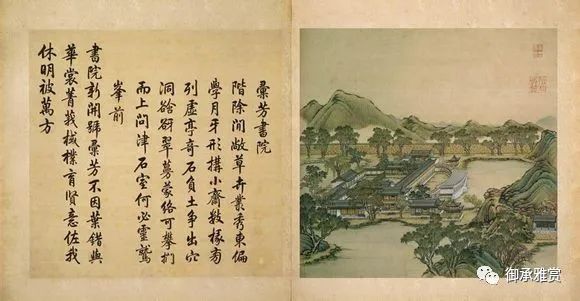 彙芳書院
階除閒敞草卉叢秀東偏
學月牙形構小齋數椽旁
列虛亭奇石負土爭出穴
洞谽谺翠蔓蒙絡可攀捫
而上問津石室何必靈鷲
峯前
書院新開號彙芳不因葉錯與
華裳菁莪棫樸育賢意佐我
休明被萬方
御承雅赏